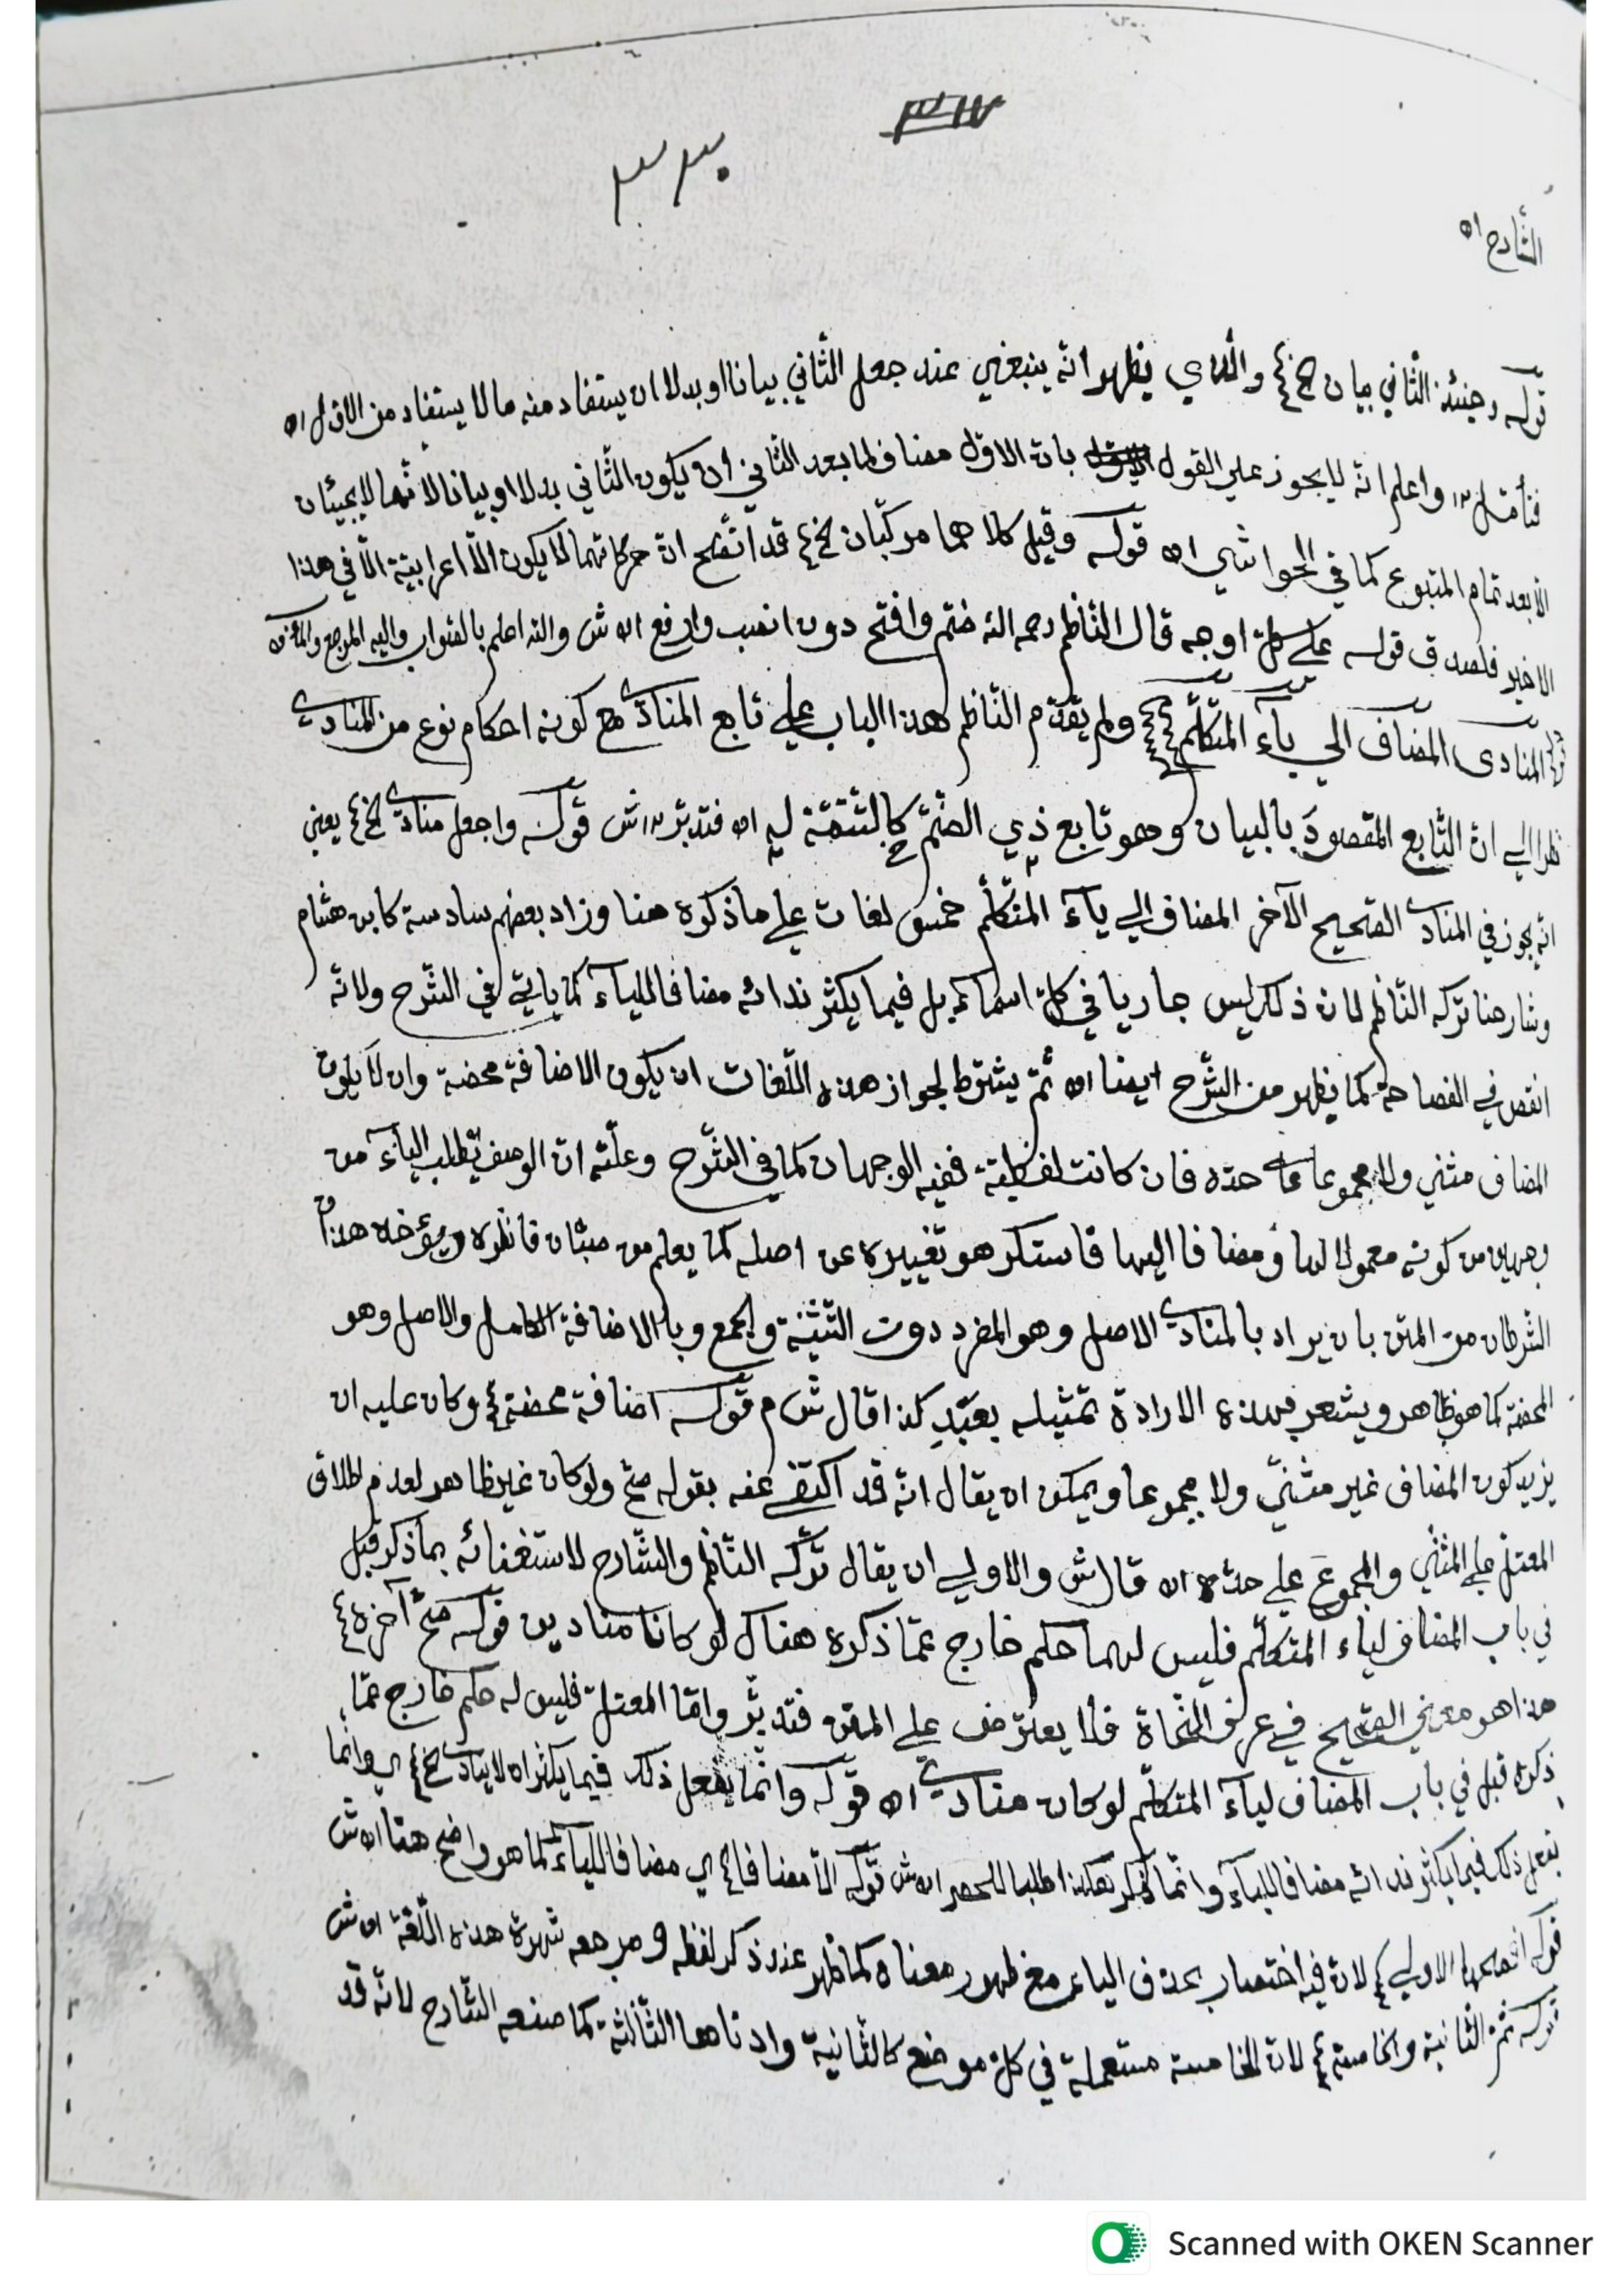 ٣١٧
٣٣٠
الشارح اه
قوله وحينئذ الثاني بيان الخ والذي يظهر انه ينبغي عند جعل الثاني بيانا او بدلا ان يستفاد منه ما لا يستفاد من الاول اه
فتأمل واعلم انه لا يجوز على القول بان الاول مضاف لما بعد الثاني ان يكون الثاني بدلا او بيانا لانهما لا يجيئان
الا بعد تمام المتبوع كما في الحواشي اه قوله وقيل كلاهما مركبان الخ قد اتضح ان حركاتهما لا يكون الا اعرابية الا في هذا
الاخير فلصدق قوله على كل اوجه قال الناظم رحمه الله ضم وافتح دون انصب وارفع اه ش والله اعلم بالصواب واليه المرجع والمآب
المنادى المضاف الى ياء المتكلم ولم يقدم الناظم هذا الباب على تابع المنادى مع كونه احكام نوع من المنادى
نظرا الى ان التابع المقصود بالبيان وهو تابع ذي الضم كالتتمة له اه فتدبر ش قوله واجعل منادى الخ يعني
انه يجوز في المنادى الصحيح الآخر المضاف الى ياء المتكلم خمس لغات على ما ذكره هنا وزاد بعضهم سادسة كابن هشام
وشارحنا تركه الناظم لان ذلك ليس جاريا في كل اسم بل فيما يكثر ندائه مضافا للياء كما ياتي في الشرح ولانه
انقص في الفصاحة كما يظهر من الشرح ايضا اه ثم يشترط لجواز هذه اللغات ان يكون الاضافة محضة وان لا يكون
المضاف مثنى ولا مجموعا على حده فان كانت لفظية ففيه الوجهان كما في الشرح وعلته ان الوصف يطلب الياء من
وجهين من كونه معمولا لها ومضافا اليها فاستكرهو تغييره عن اصله كما يعلم من فانظره ويؤخذ هذا
الشرطان من المتن بان يراد بالمنادى الاصل وهو المفرد دون التثنية والجمع وبالاضافة الكامل والاصل وهو
المحضة كما هو ظاهر ويشعر بهذه الارادة تمثيله بعبد كذا قال ش م قوله اضافة محضة وكان عليه ان
يزيد كون المضاف غير مثنى ولا مجموعا ويمكن ان يقال انه قد اكتفى عنه بقوله صح ولو كان غير ظاهر لعدم اطلاق
المعتل على المثنى والمجموع على حده اه قال ش والاولى ان يقال تركه الناظم والشارح لاستغنائه بما ذكر قبل
في باب المضاف لياء المتكلم فليس لهما حكم خارج عما ذكره هناك لو كانا منادين قوله صح آخره
هذا هو معنى الصحيح في عرف النحاة فلا يعترض على المتن فتدبر واما المعتل فليس له حكم خارج عما
ذكره قبل في باب المضاف لياء المتكلم لو كان منادى اه قوله وانما يفعل ذلك فيما يكثر ان لا ينادى الخ اي وانما
يفعل ذلك فيما يكثر ندائه مضافا للياء وانما لم يكن هكذا طلبا للحصر اه ش قوله الا مضافا اي مضافا للياء كما هو واضح هنا اه ش
قوله افصحها الاولى لان فيه اختصار بحذف الياء مع ظهور معناه كما ظهر عند ذكر لفظه ومرجعه شهرة هذه اللغة اه ش
قوله ثم الثانية والخامسة لان الخامسة مستعملة في كل موضع كالثانية وادناها الثالثة كما صنعه الشارح لانه قد
Scanned with OKEN Scanner